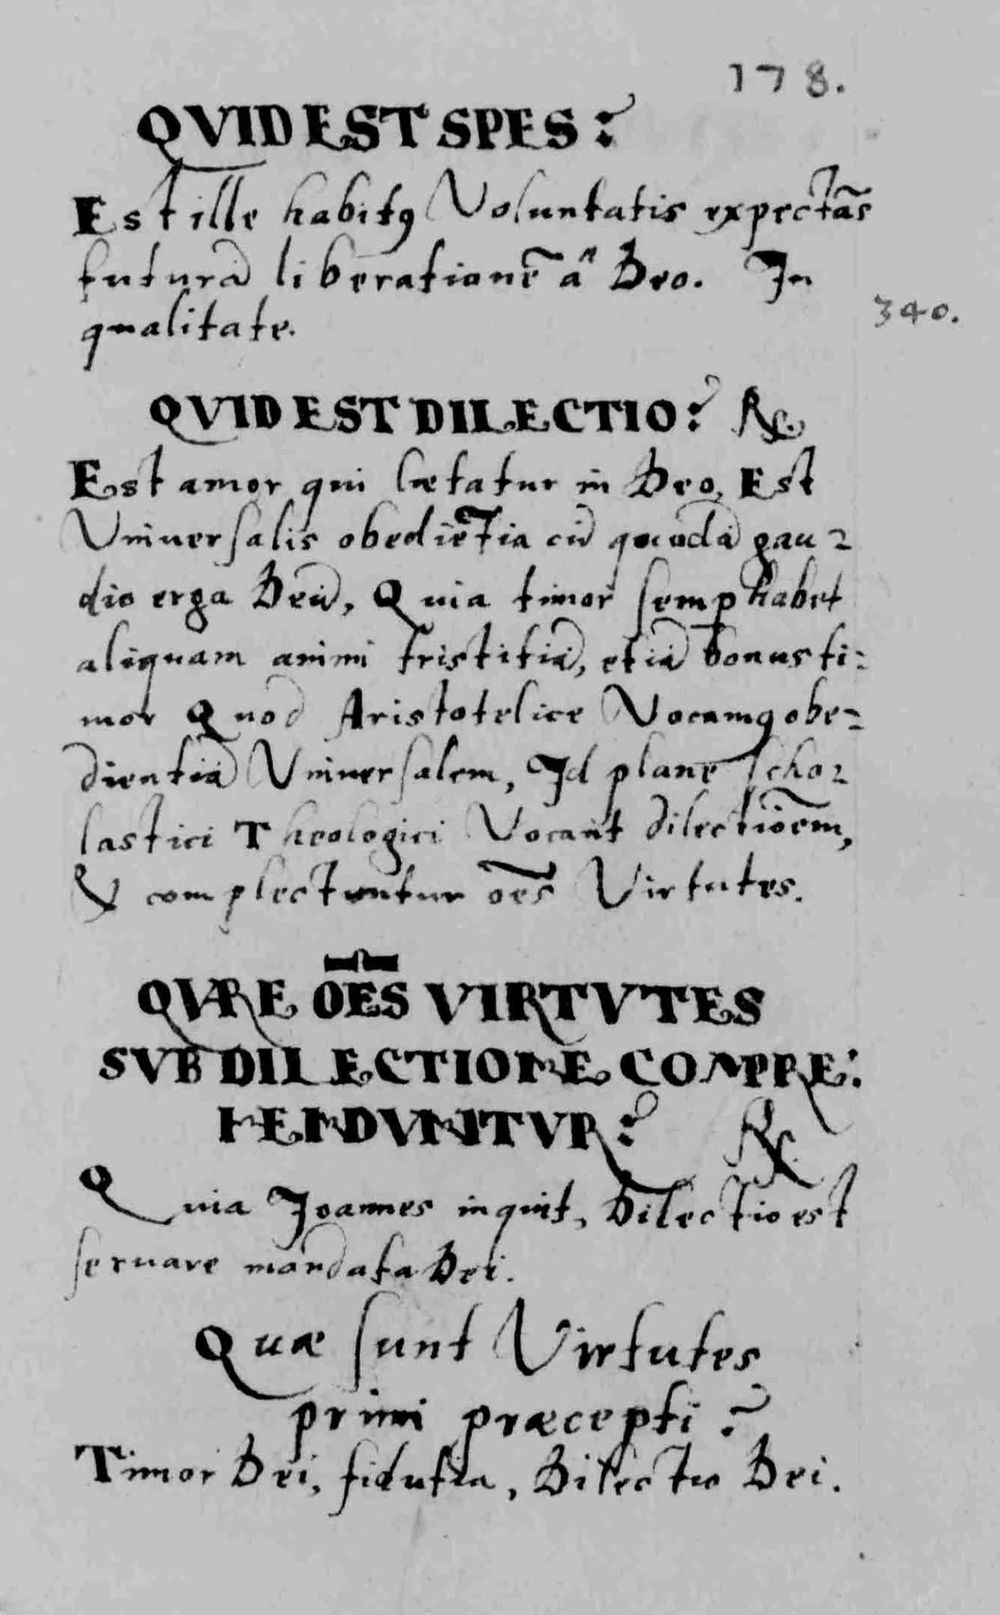 178.
QVID EST SPES?
Est ille habitꝯ Voluntatis expectās
futurā liberationē â Deo. In
340.
qualitate.
QVID EST DILECTIO? ℞.
Est amor qui lætatur in Deo, Est
Vniuersalis obediētia cū quadā gau=
dio erga Deū, Quia timor semp habet
aliquam animi tristitiā, etiā bonus ti=
mor Quod Aristotelice Vocamꝯ obe=
dientiā Vniuersalem, Id plane scho=
lastici Theologici Vocant dilectiōem,
& complectuntur oēs Virtutes.
QVARE OĒS VIRTVTES
SVB DILECTIONE COMPRE:
HENDVNTVR? ℞.
Quia Joannes inquit, Dilectio est
seruare mandata Dei.
Quæ sunt Virtutes
primi præcepti?
Timor Dei, fidutia, Dilectio Dei.